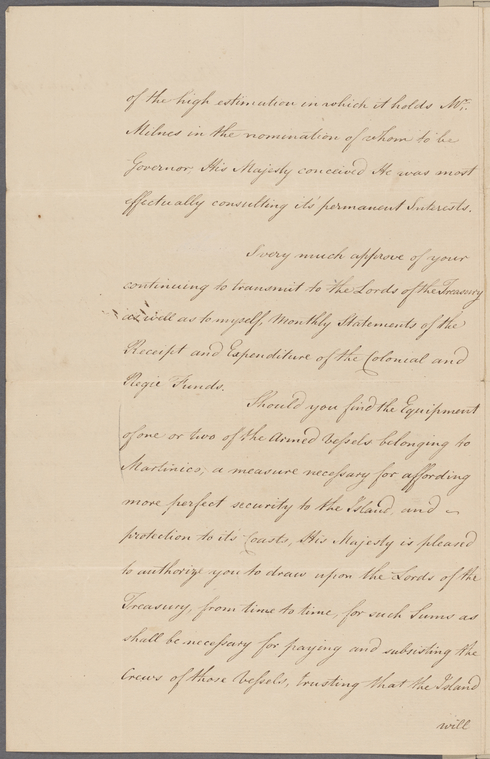 of the high estimation in which it holds Mr.
Milnes in the nomination of whom to be
Governor, His Majesty conceived He was most
effectually consulting it's permanent Interests.
I very much approve of your
continuing to transmit to the Lords of the Treasury
as well as to myself, Monthly Statements of the
Receipt and Expenditure of the Colonial and
Regie Funds.
Should you find the Equipment
of one or two of the Armed Vessels belonging to
Martinico, a measure necessary for affording
more perfect security to the Island, and
protection to it's Coasts, His Majesty is pleased
to authorize you to draw upon the Lords of the
Treasury, from time to time, for such Sums as
shall be necessary for paying and subsisting the
Crews of those Vessels, trusting that the Island
will